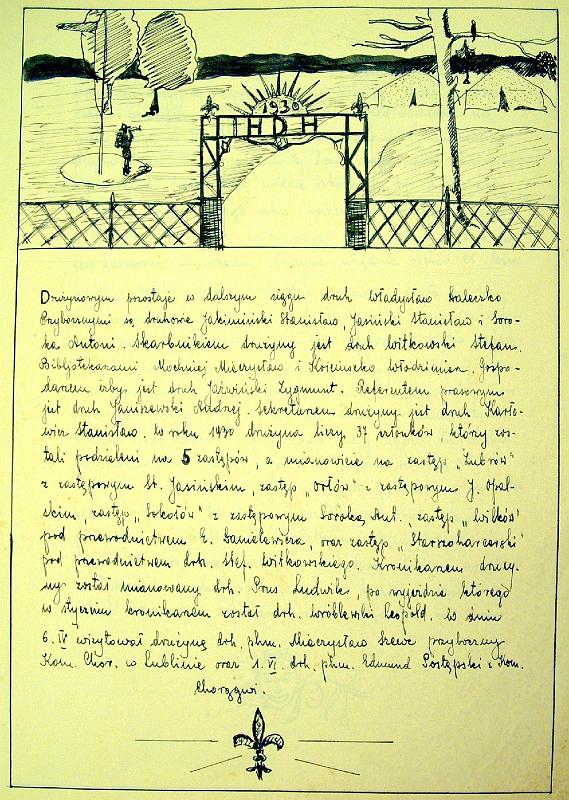 1930
I H D H
Drużynowym pozostaje w dalszym ciągu druh Władysław Haleczko
Przybocznymi są druhowie Jakimiński Stanisław, Jasiński Stanisław i Soro-
ka Antoni. Skarbnikiem drużyny jest druh Witkowski Stefan.
Bibljotekarzami Mochniej Mieczysław i Krzemecko Włodzimierz. Gospo-
darzem izby jest druh Jaźwiński Zygmunt. Referentem prasowym
jest druh Janiszewski Andrzej. Sekretarzem drużyny jest druh Karło-
wicz Stanisław. W roku 1930 drużyna liczy 37 członków, który zos-
tali podzieleni na 5 zastępów, a mianowicie na zastęp „Żubrów"
z zastępowym St. Jasińskim, zastęp „Orłów" z zastępowym J. Opal-
skim, zastęp „Sokołów" z zastępowym Soroką Ant., zastęp „Wilków"
pod przewodnictwem E. Danielewicza, oraz zastęp „Starszoharcerski"
pod przewodnictwem drh. Stef. Witkowskiego. Kronikarzem druży-
ny został mianowany drh. Prus Ludwik, po wyjeździe którego
w styczniu kronikarzem został drh. Wróblewski Leopold. W dniu
6.IV wizytował drużynę drh. phm. Mieczysław Szewc przyboczny
Kom. Chor. w Lublinie oraz 1.VI drh. phm. Edmund Postępski z Kom.
Chorągwi.